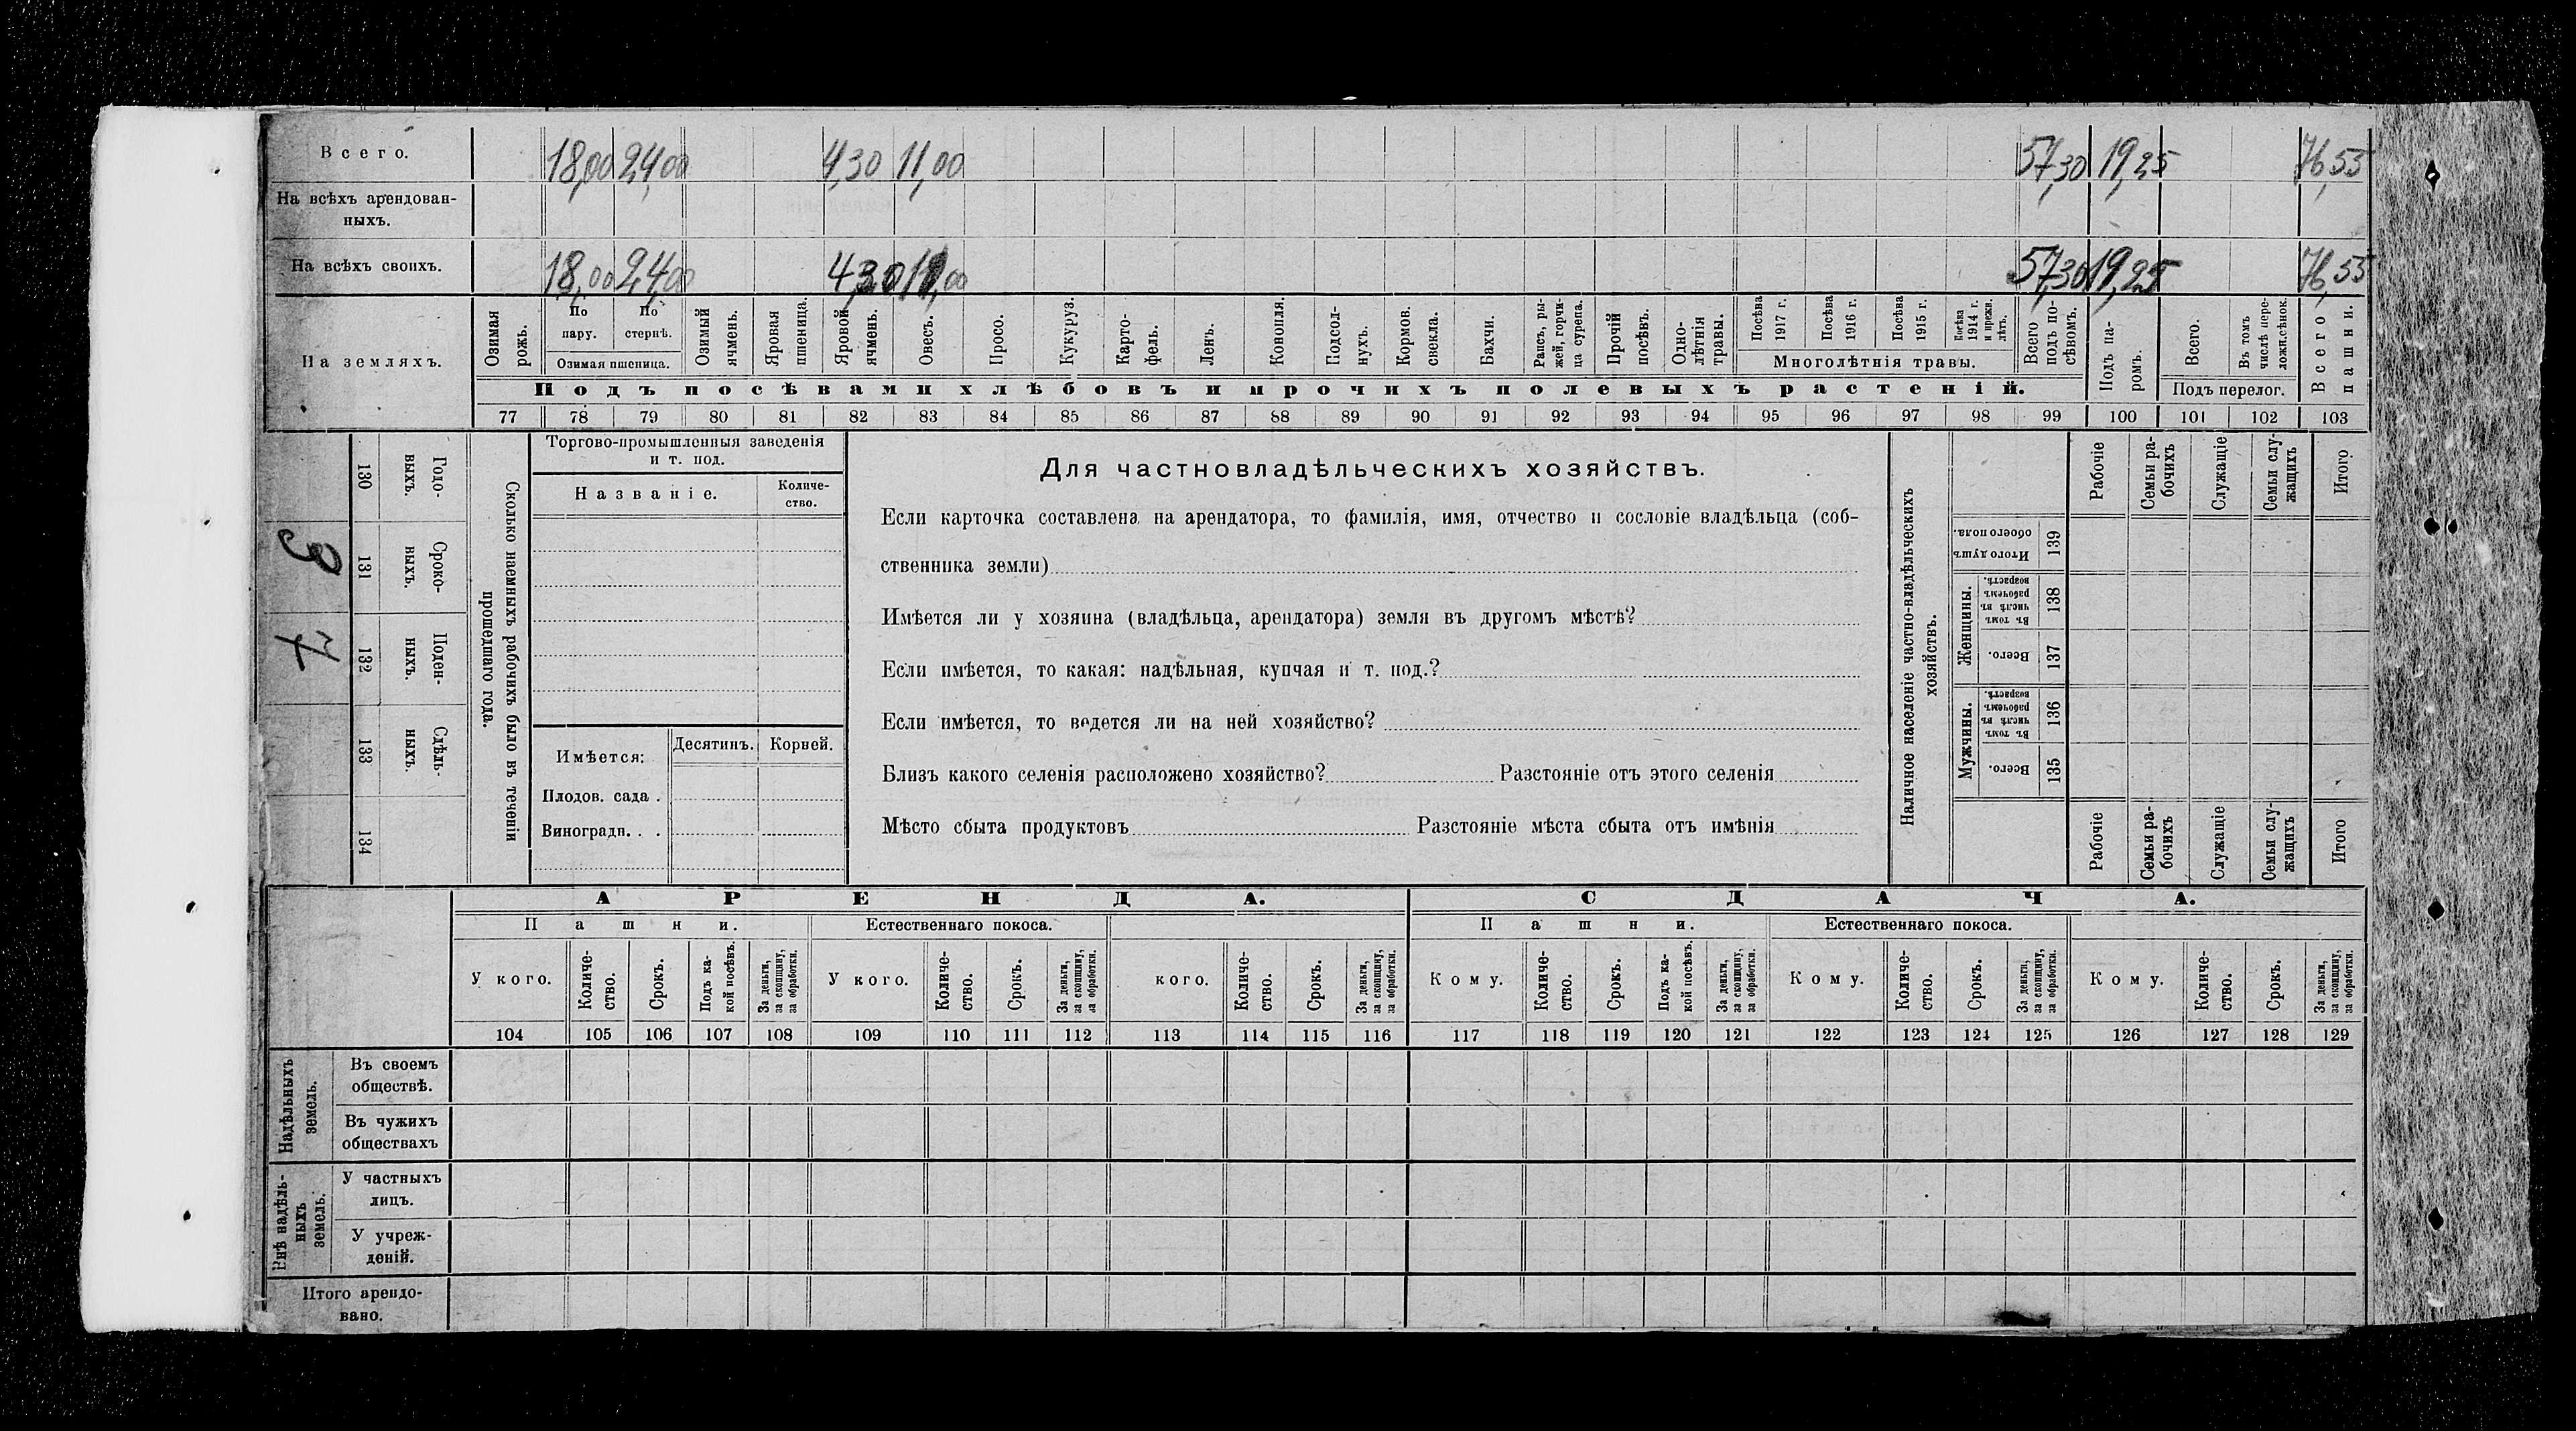 Всего. 18,00 24,00 4,30 11,00 57,30 19,25 76,55
На всѣхъ арендован-
ныхъ.
На всѣхъ своихъ. 18,00 24,00 4,30 11,00 57,30 19,25 76,55
На земляхъ.
Озимая рожь.
По пару.
По стернѣ.
Озимая пшеница.
Озимый ячмень.
Яровая пшеница.
Яровой ячмень.
Овесъ.
Просо.
Кукуруз.
Карто-
фель.
Ленъ.
Конопля.
Подсол-
нухъ.
Кормов. свекла.
Бахчи.
Рапсъ, ры-
жей, горчи-
ца сурепа.
Прочій посѣвъ.
Одно-
лѣтнія травы.
Посѣва 1917 г.
Посѣва 1916 г.
Посѣва 1915 г.
Посѣва 1914 г. и прежн. лѣтъ.
Многолѣтнія травы.
Всего подъ по-
сѣвомъ.
Подъ па-
ромъ.
Всего.
Въ томъ числѣ пере-
ложн.сѣнок.
Подъ перелог.
Всего пашни.
Подъ посѣвами хлѣбовъ и прочихъ полевыхъ растеній.
77 78 79 80 81 82 83 84 85 86 87 88 89 90 91 92 93 94 95 96 97 98 99 100 101 102 103
Сколько наемныхъ рабочихъ было въ теченіи
прошедшаго года.
Годо-
выхъ.
130
Сроко-
ныхъ.
131
3
Поден-
ныхъ.
132
7
Сдѣль-
ныхъ.
133
134
Торгово-промышленныя заведенія
и т. под.
Названіе.
Количе-
ство.
Имѣется:
Десятинъ.
Корней.
Плодов. сада .
Виноградн. . .
Для частновладѣльческихъ хозяйствъ.
Если карточка составлена на арендатора, то фамилія, имя, отчество и сословіе владѣльца (соб-
ственника земли)
Имѣется ли у хозяина (владѣльца, арендатора) земля въ другомъ мѣстѣ?
Если имѣется, то какая: надѣльная, купчая и т. под.?
Если имѣется, то ведется ли на ней хозяйство?
Близъ какого селенія расположено хозяйство? Разстояніе отъ этого селенія
Мѣсто сбыта продуктовъ Разстояніе мѣста сбыта отъ имѣнія
Наличное населеніе частно-владѣльческихъ
хозяйствъ.
Рабочіе
Семьи ра-
бочихъ
Служащіе
Семьи слу-
жащихъ
Итого
Итого душъ обоего пола.
139
Женщины.
Въ томъ числѣ въ рабочемъ возрастѣ.
138
Всего.
137
Мужчины.
Въ томъ числѣ въ рабочемъ возрастѣ.
136
Всего.
135
Рабочіе
Семьи ра-
бочихъ
Служащіе
Семьи слу-
жащихъ
Итого
АРЕНДА.
СДАЧА.
Пашни.
Естественнаго покоса.
Пашни.
Естественнаго покоса.
У кого.
Количе-
ство.
Срокъ.
Подъ ка-
кой посѣвъ.
За деньги,
за скопщину,
за обработки.
У кого.
Количе-
ство.
Срокъ.
За деньги,
за скопщину,
за обработки.
кого.
Количе-
ство.
Срокъ.
За деньги,
за скопщину,
за обработки.
Кому.
Количе-
ство.
Срокъ.
Подъ ка-
кой посѣвъ.
За деньги,
за скопщину,
за обработки.
Кому.
Количе-
ство.
Срокъ.
За деньги,
за скопщину,
за обработки.
Кому.
Количе-
ство.
Срокъ.
За деньги,
за скопщину,
за обработки.
104 105 106 107 108 109 110 111 112 113 114 115 116 117 118 119 120 121 122 123 124 125 126 127 128 129
Надѣльныхъ
земель.
Въ своемъ
обществѣ.
Въ чужихъ
обществахъ
Внѣ надѣль-
ныхъ
земель.
У частныхъ
лицъ.
У учреж-
деній.
Итого арендо-
вано.